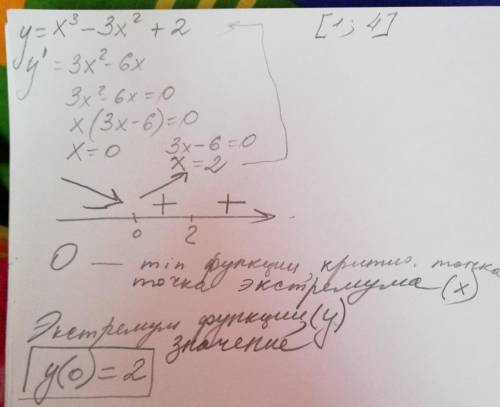 y = x³ − 3x² + 2 [1; 4]
y' = 3x² − 6x
3x² − 6x = 0
x (3x − 6) = 0
x = 0 3x − 6 = 0
x = 2
− + +
0 2
0 — min функции, критич. точка
точка экстремума (x)
Экстремум функции (y)
значение
y(0) = 2